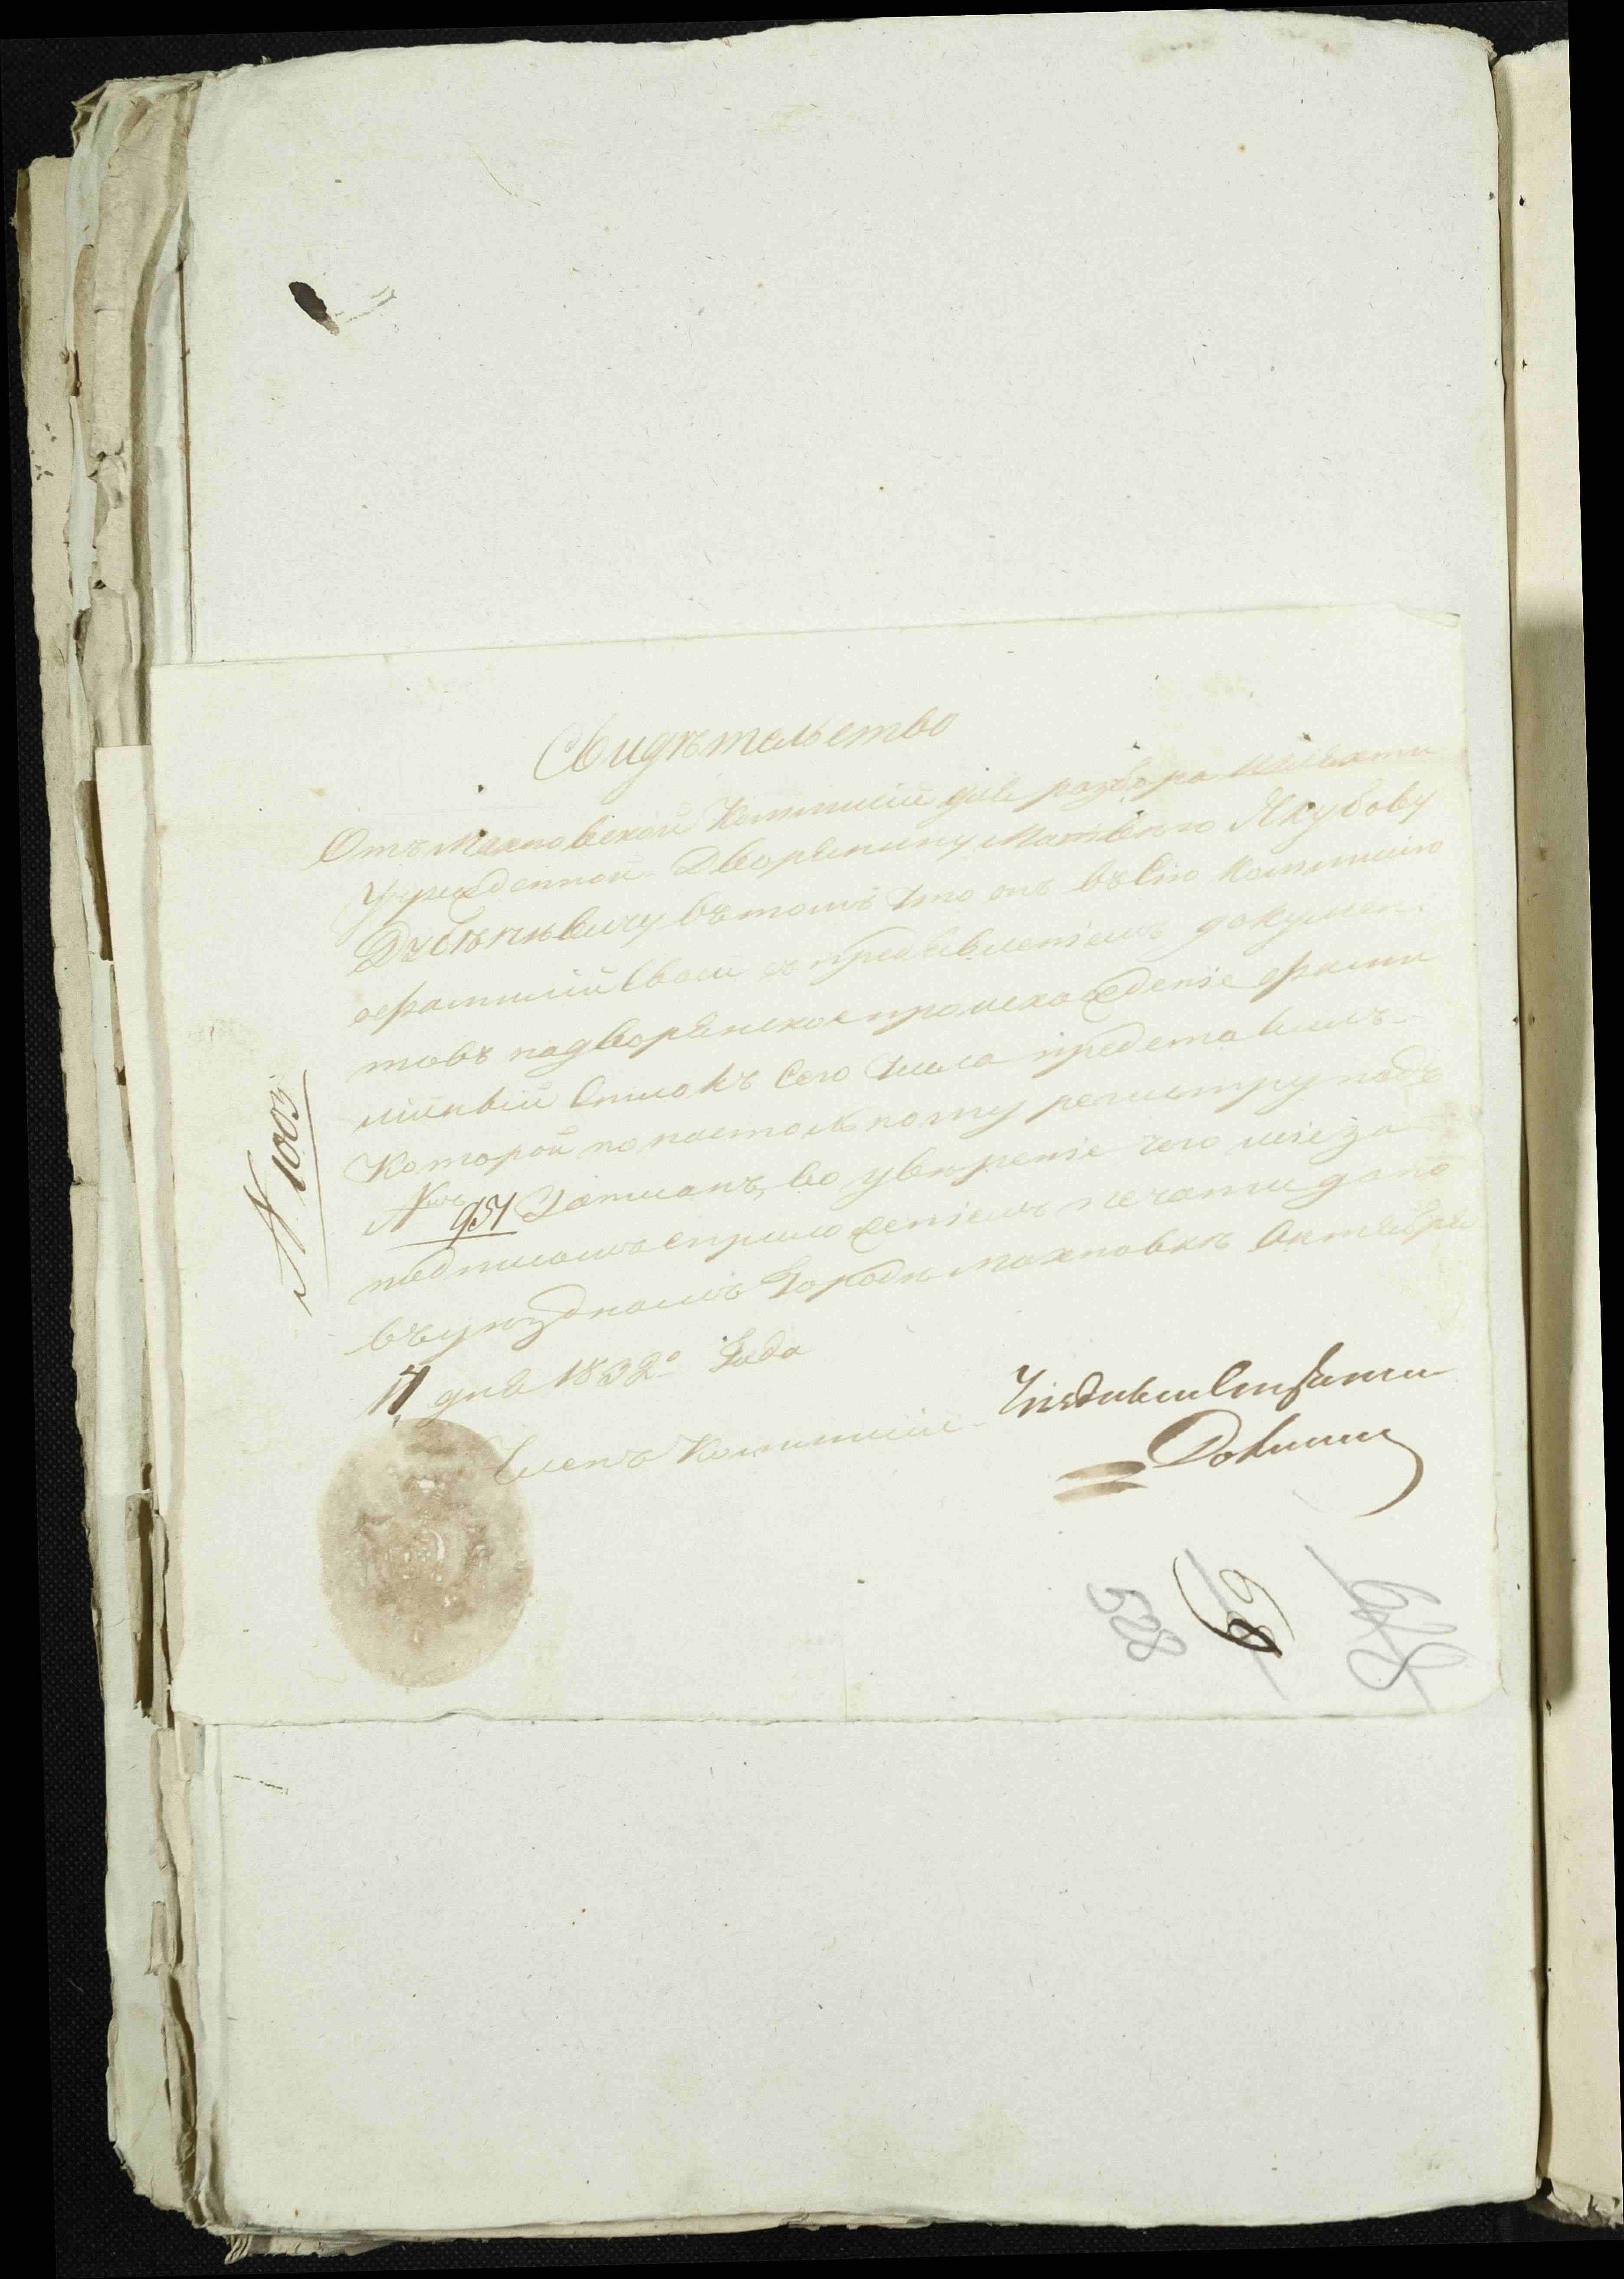 Свидѣтельство
Отъ Махновской Коммисіи для разбора шляхти
Учрежденной Дворянину Матвею Якубову
въ томъ что онъ въ Сію Коммисію
о фамиліи Своей съ предъявленіемъ докумен-
товъ на дворянское происхожденіе фами
лійный Списокъ Сего Числа представилъ
Которой по настольному регистру подъ
№мъ 951 Записанъ, во увѣреніе чего сіе за
подписомъ с приложеніемъ печати дано
въ уѣздномъ Городѣ Махновкѣ Октября
17 дня 1832го Года
Членъ Коммисіи
N 1003
69
528